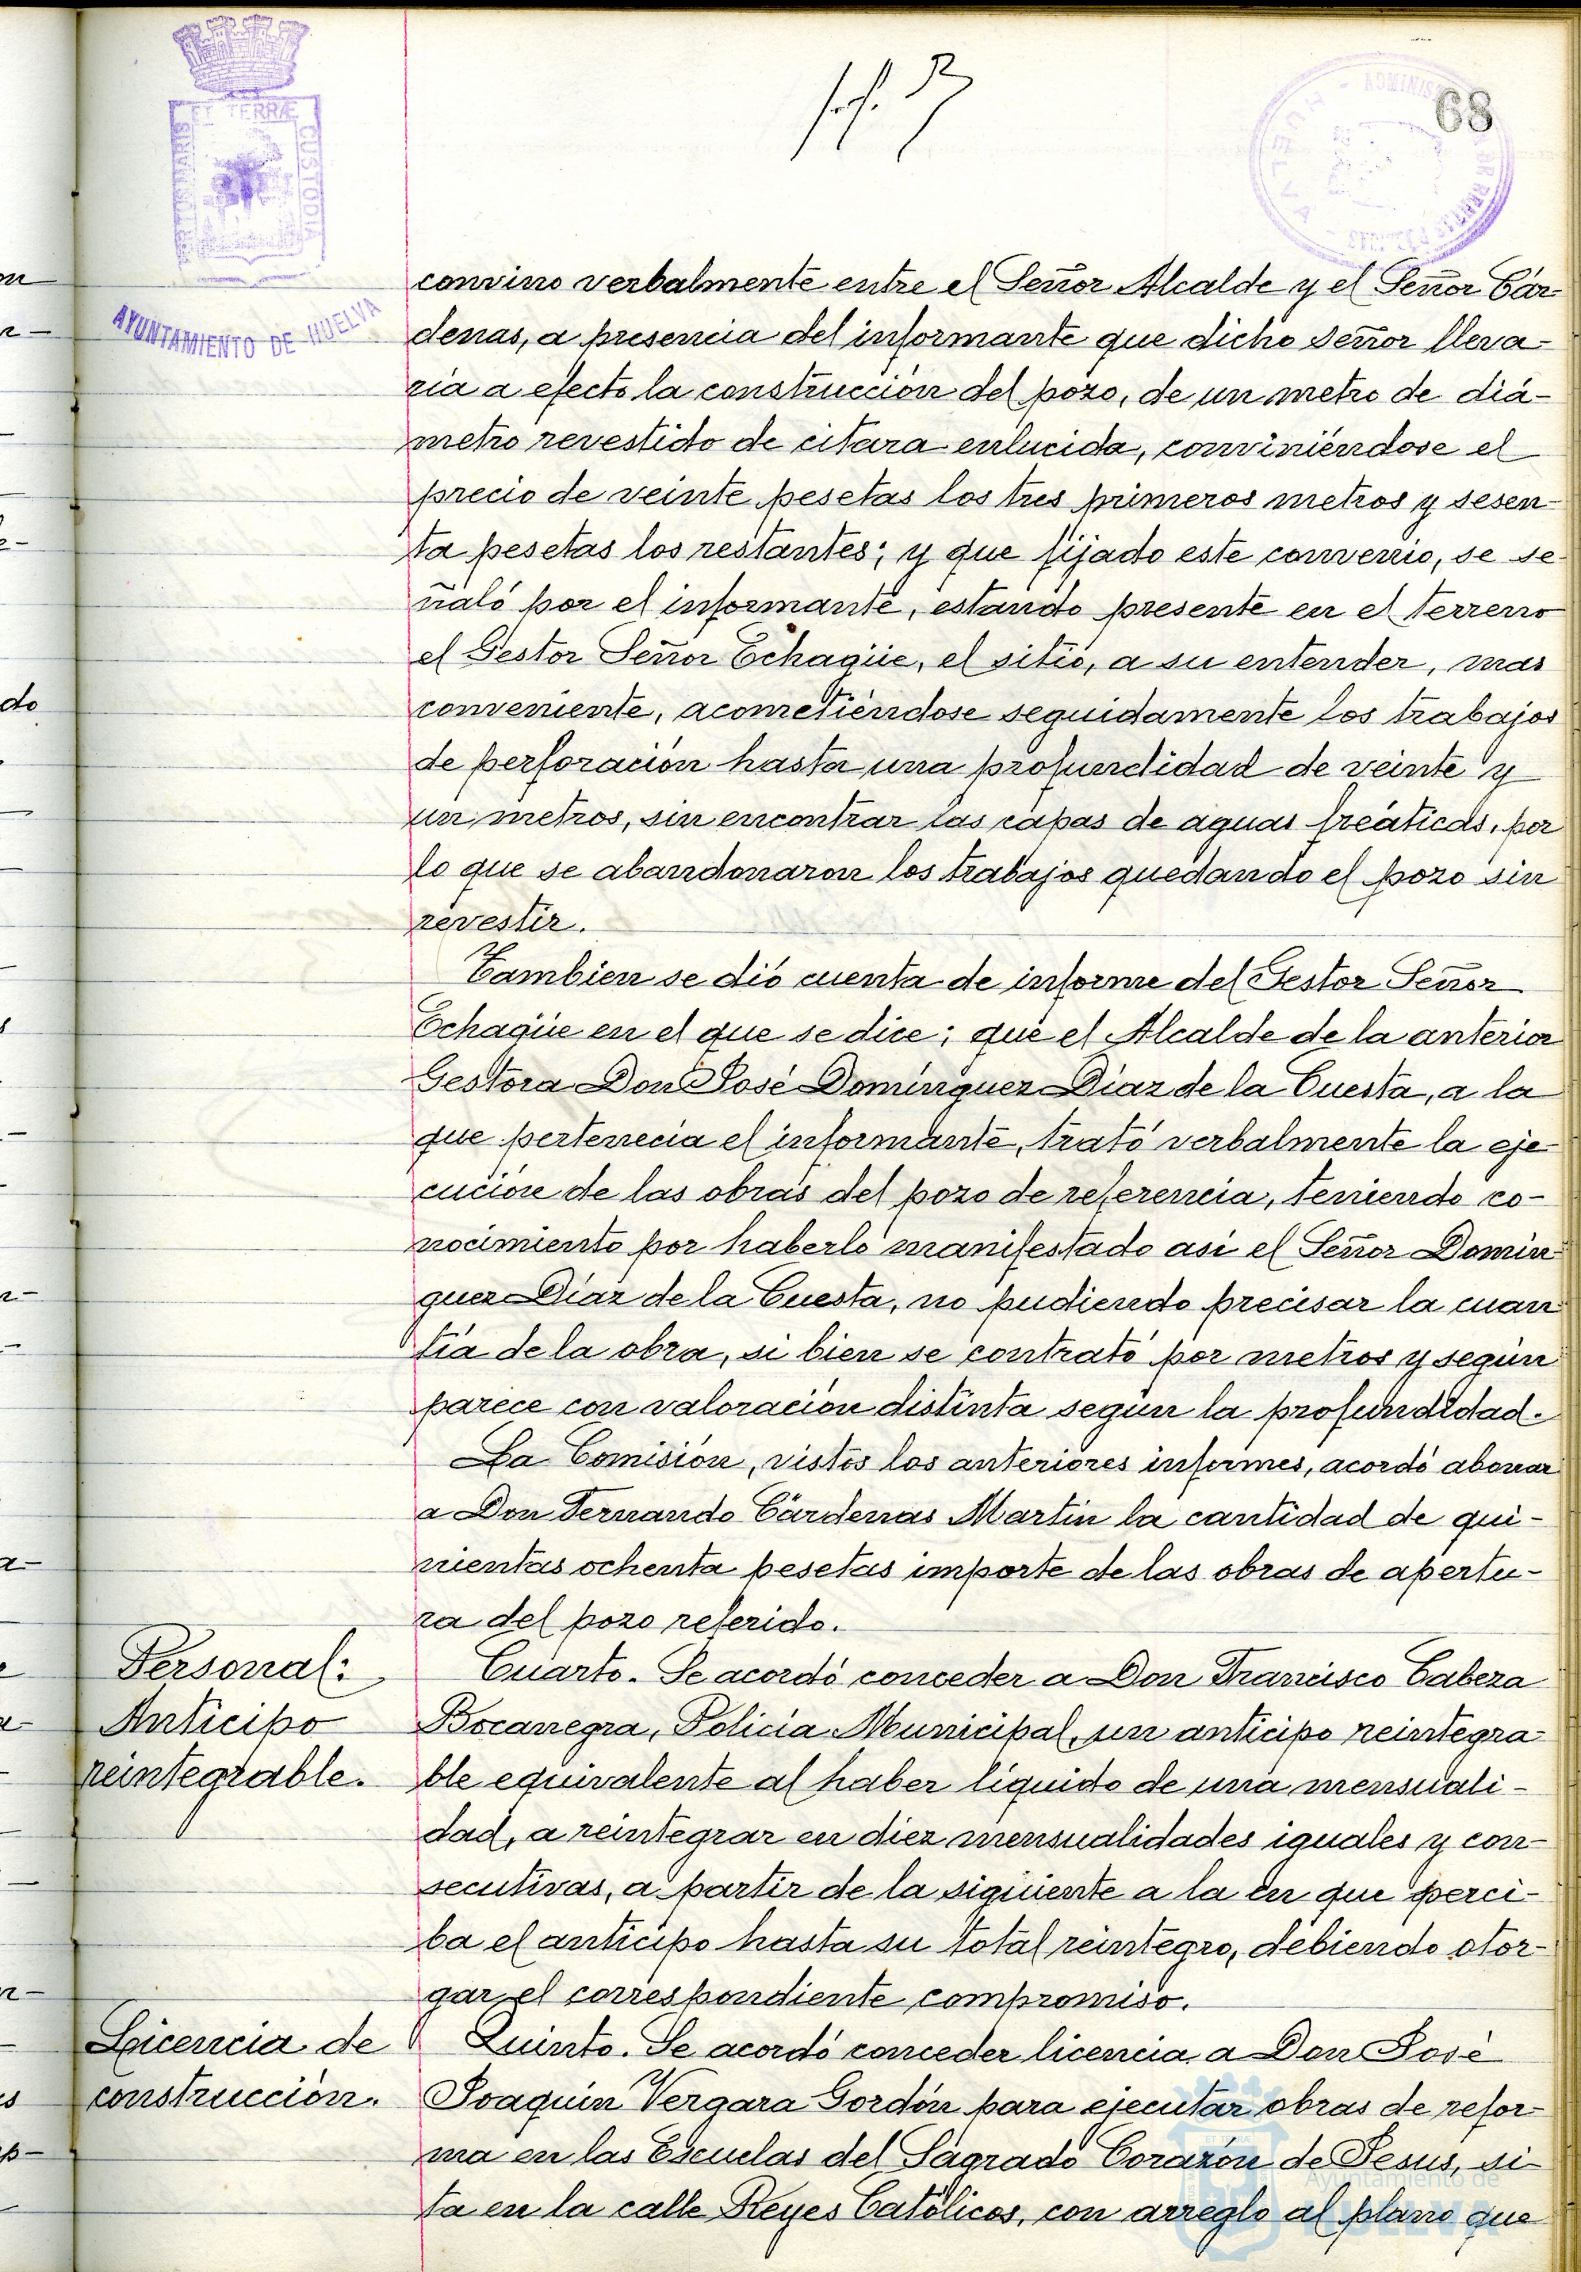 68
PORTUS MARIS ET TERRÆ CUSTODIA
AYUNTAMIENTO DE HUELVA
convino verbalmente entre el Señor Alcalde y el Señor Cár-
denas, a presencia del informante que dicho señor lleva-
ria a efecto la construcción del pozo, de un metro de diá-
metro revestido de citara enlucida, conviniéndose el
precio de veinte pesetas los tres primeros metros y sesen-
ta pesetas los restantes; y que fijado este convenio, se se-
ñaló por el informante, estando presente en el terreno
el Gestor Señor Echagüe, el sitio, a su entender, mas
conveniente, acometiéndose seguidamente los trabajos
de perforación hasta una profundidad de veinte y
un metros, sin encontrar las capas de aguas freáticas, por
lo que se abandonaron los trabajos quedando el pozo sin
revestir.
Tambien se dió cuenta de informe del Gestor Señor
Echagüe en el que se dice; que el Alcalde de la anterior
Gestora Don José Domínguez Díaz de la Cuesta, a la
que pertenecia el informante, trató verbalmente la eje-
cución de las obras del pozo de referencia, teniendo co-
nocimiento por haberlo manifestado asi el Señor Domín-
guez Díaz de la Cuesta, no pudiendo precisar la cuan-
tía de la obra, si bien se contrató por metros y según
parece con valoración distinta según la profundidad.
La Comisión, vistos los anteriores informes, acordó abonar
a Don Fernando Cárdenas Martín la cantidad de qui-
nientas ochenta pesetas importe de las obras de apertu-
ra del pozo referido.
Personal:
Anticipo
reintegrable.
Cuarto. Se acordó conceder a Don Francisco Cabeza
Bocanegra, Policía Municipal, un anticipo reintegra-
ble equivalente al haber líquido de una mensuali-
dad, a reintegrar en diez mensualidades iguales y con-
secutivas, a partir de la siguiente a la en que perci-
ba el anticipo hasta su total reintegro, debiendo otor-
gar el correspondiente compromiso.
Licencia de
construcción.
Quinto. Se acordó conceder licencia a Don José
Joaquín Vergara Gordón para ejecutar obras de refor-
ma en las Escuelas del Sagrado Corazón de Jesus, si-
ta en la calle Reyes Católicos, con arreglo al plano que
Ayuntamiento de
HUELVA